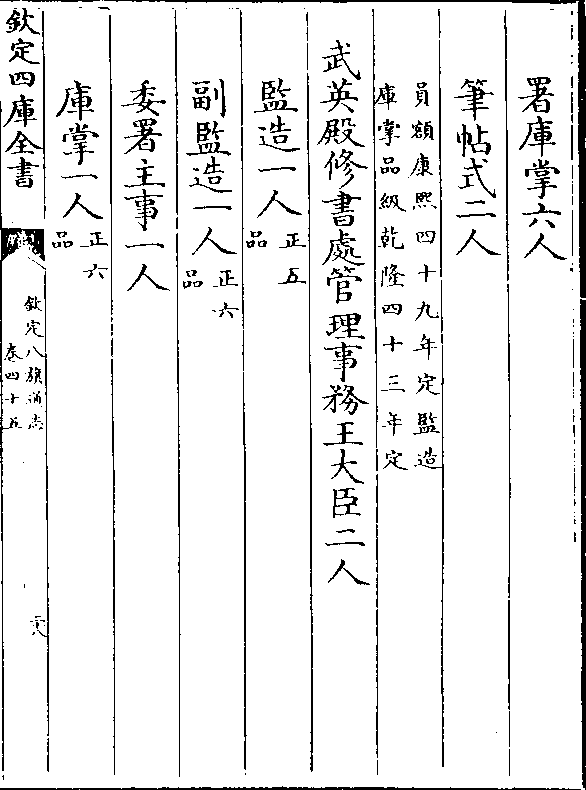 署庫掌六人
筆帖式二人
員額康熙四十九年定監造
庫掌品級乾隆四十三年定
武英殿修書處管理事務王大臣二人
監造一人正五品
副監造一人正六品
委署主事一人
庫掌一人正六品
欽定四庫全書
欽定八旗通志
卷四十五
二十八